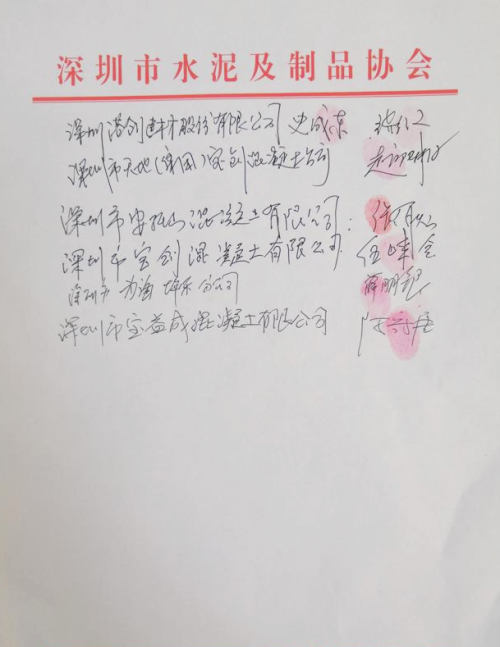 深圳市水泥及制品协会
深圳港创建材股份有限公司 史成东
深圳市天地(集团)宝创混凝土公司
深圳市安托山混凝土有限公司:
深圳市宝创混凝土有限公司 伍峰
深圳市 坪东分公司 薛明银
深圳市宝益成混凝土有限公司